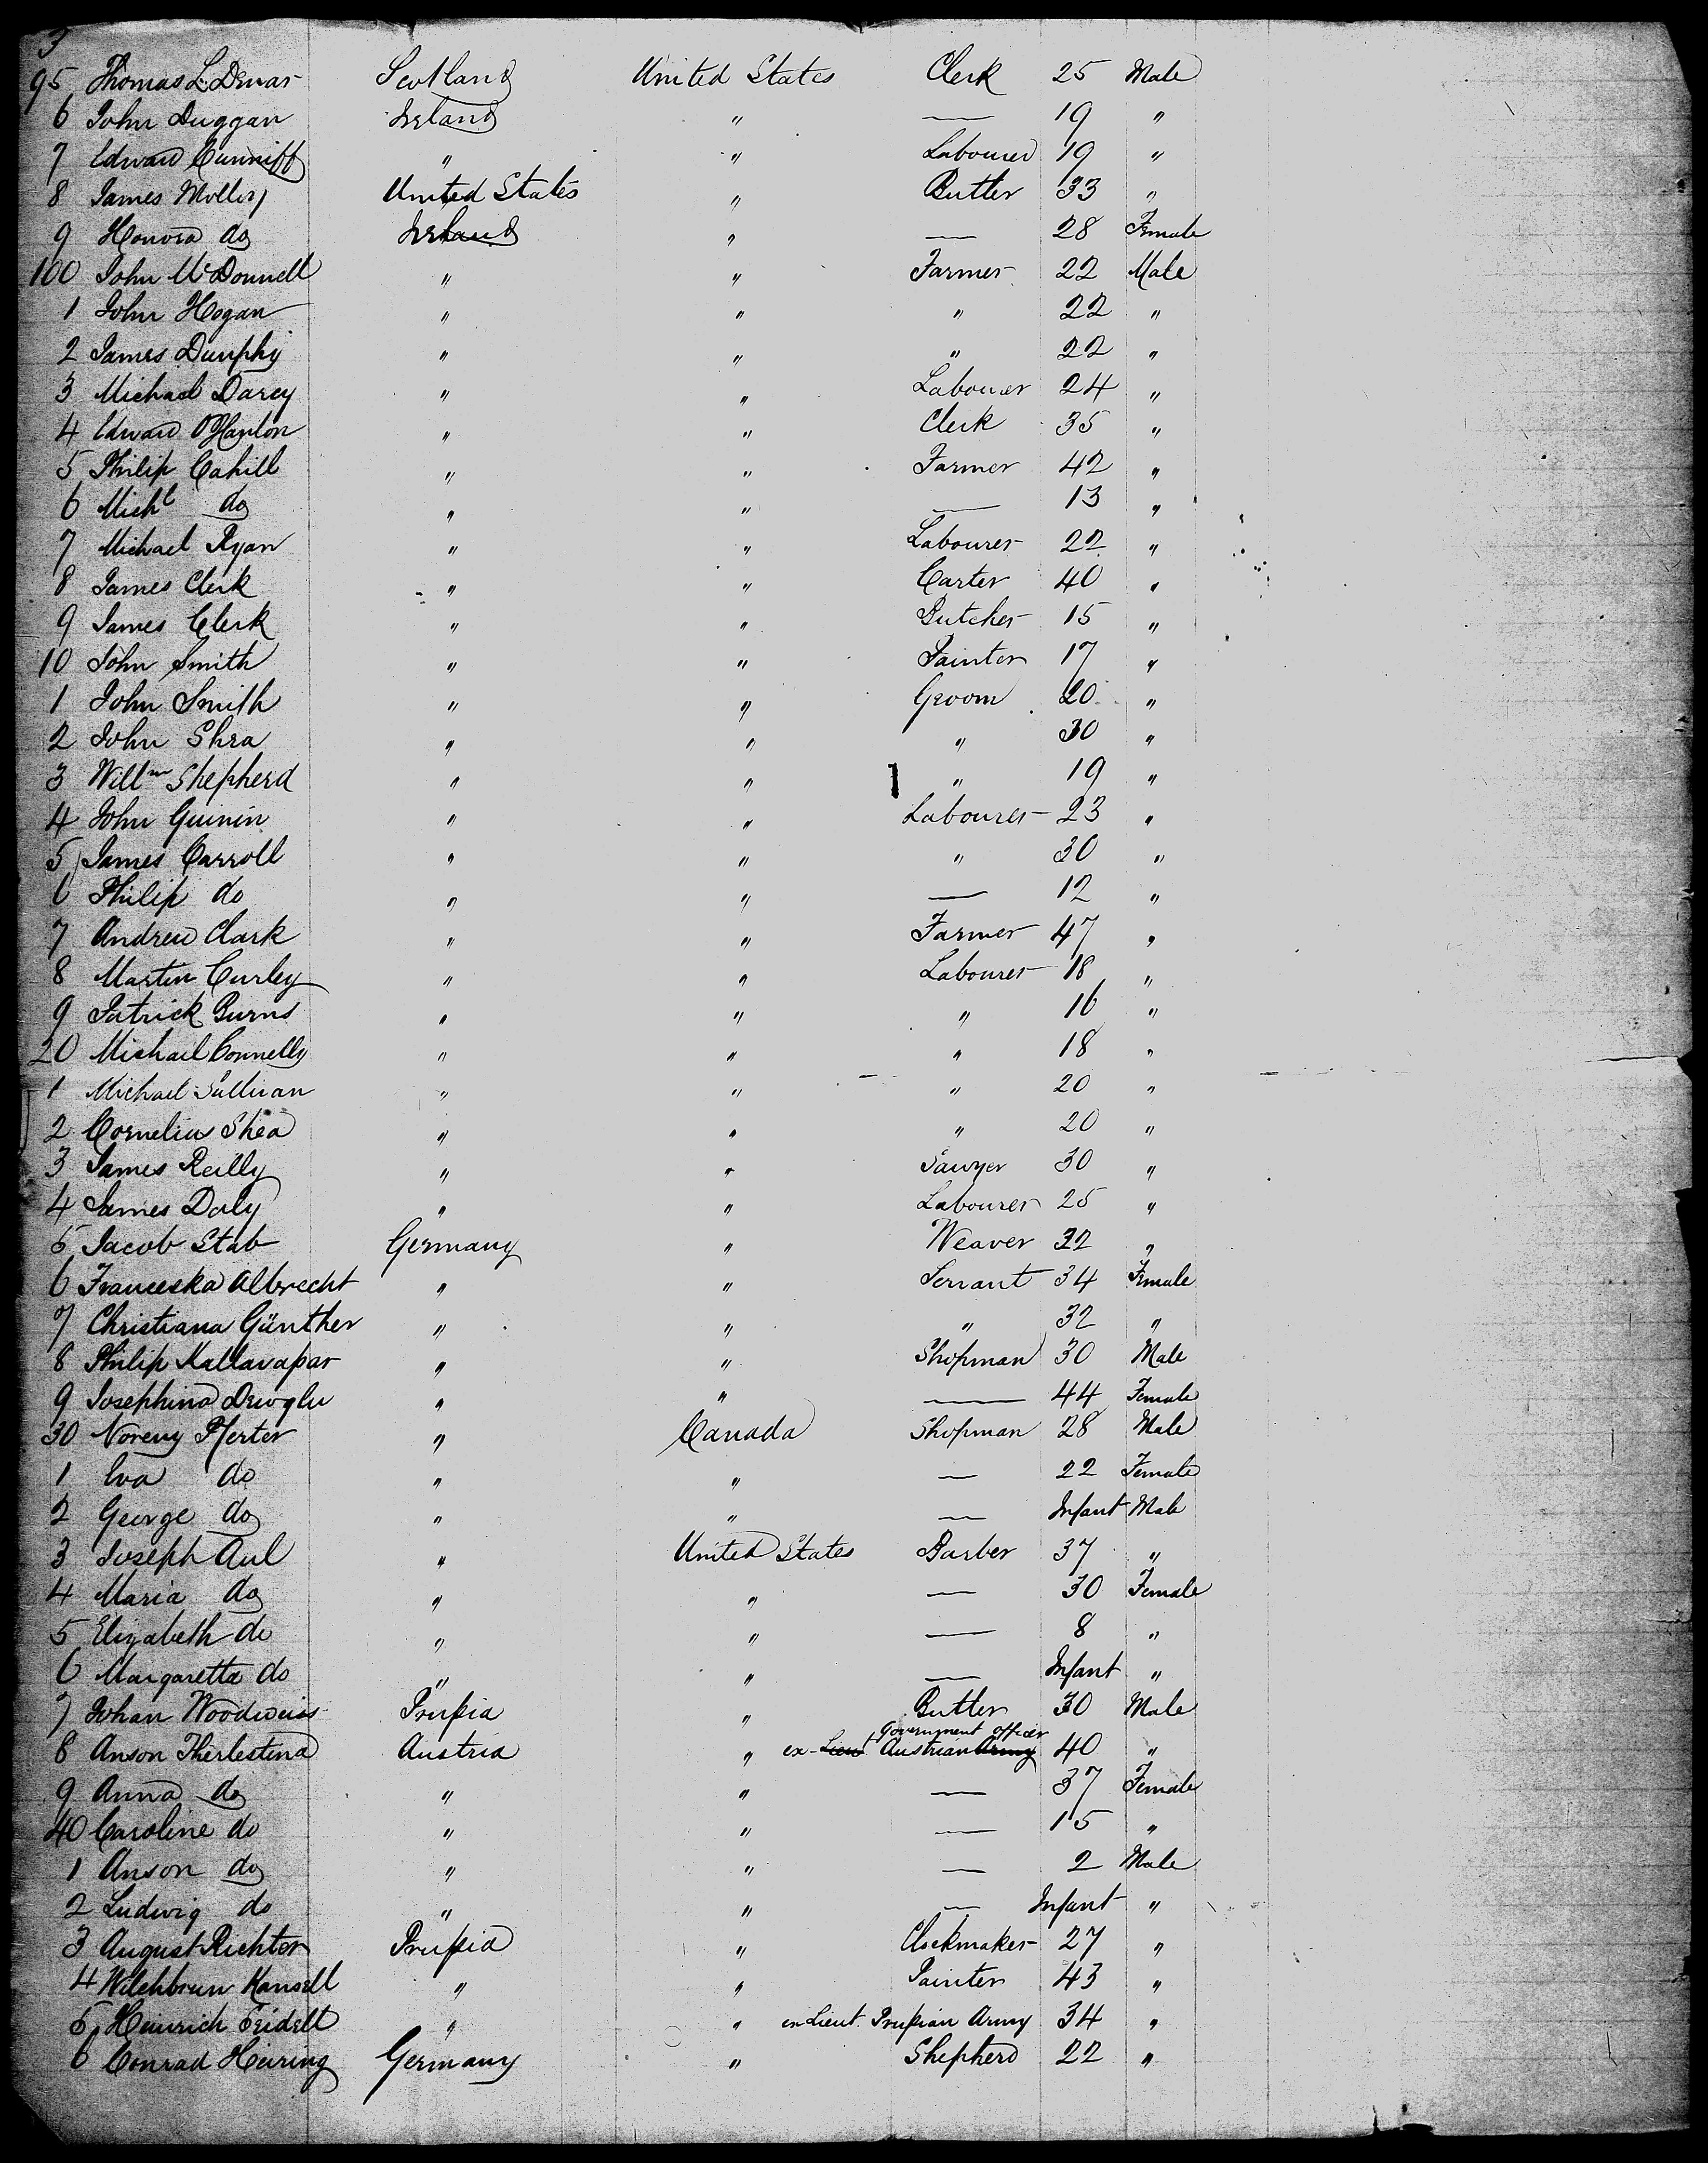 3
95 Thomas L. Dewar Scotland United States Clerk 25 Male
6 John Duggan Ireland " — 19 "
7 Edward Cunniff " " Labourer 19 "
8 James Molloy United States " Butler 33 "
9 Honora do Ireland " — 28 Female
100 John McDonnell " " Farmer 22 Male
1 John Hogan " " " 22 "
2 James Dunphy " " " 22 "
3 Michael Darcy " " Labourer 24 "
4 Edward O'Hanlon " " Clerk 35 "
5 Philip Cahill " " Farmer 42 "
6 Michl do " " — 13 "
7 Michael Ryan " " Labourer 22 "
8 James Clerk " " Carter 40 "
9 James Clerk " " Butcher 15 "
10 John Smith " " Painter 17 "
1 John Smith " " Groom 20 "
2 John Shea " " " 30 "
3 Willm Shepherd " " " 19 "
4 John Guinin " " Labourer 23 "
5 James Carroll " " " 30 "
6 Philip do " " — 12 "
7 Andrew Clark " " Farmer 47 "
8 Martin Curley " " Labourer 18 "
9 Patrick Burns " " " 16 "
20 Michael Connelly " " " 18 "
1 Michael Sullivan " " " 20 "
2 Cornelius Shea " " " 20 "
3 James Reilly " " Sawyer 30 "
4 James Daly " " Labourer 25 "
5 Jacob Stab Germany " Weaver 32 "
6 Franceska Albrecht " " Servant 34 Female
7 Christiana Günther " " " 32 "
8 Philip " " Shopman 30 Male
9 Josephina " " — 44 Female
30 Pferter " Canada Shopman 28 Male
1 Eva do " " — 22 Female
2 George do " " — Infant Male
3 Joseph Aul " United States Barber 37 "
4 Maria do " " — 30 Female
5 Elizabeth do " " — 8 "
6 Margaretta do " " — Infant "
7 Johan Woodweiss Prussia " Butler 30 Male
Government officer
8 Anson Therlestina Austria " ex-Lieut Austrian Army 40 "
9 Anna do " " — 37 Female
40 Caroline do " " — 15 "
1 Anson do " " — 2 Male
2 Ludwig do " " — Infant "
3 August Richter Prussia " Clockmaker 27 "
4 Kansell " " Painter 43 "
5 Heinrich Seidelt " " ex Lieut. Prussian Army 34 "
6 Conrad Heiring Germany " Shepherd 22 "